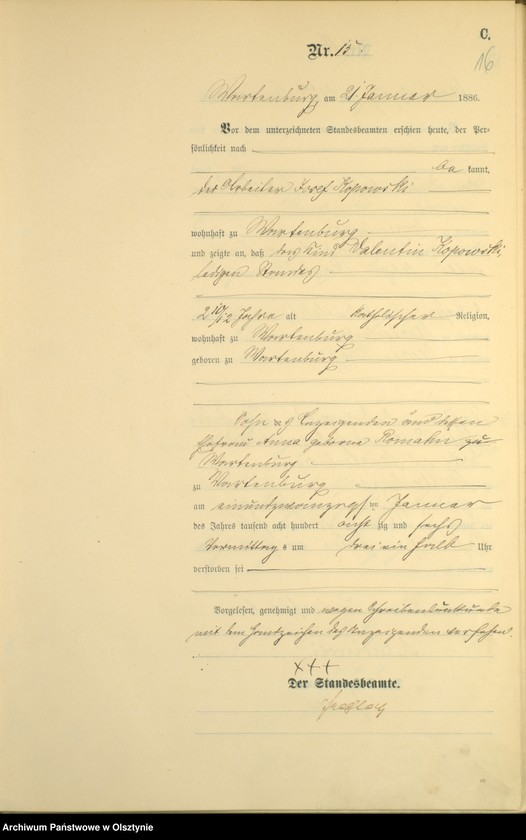 C.
Nr. 15.
16
Wartenburg, am 21 Januar 1886.
Vor dem unterzeichneten Standesbeamten erschien heute, der Per-
sönlichkeit nach
be kannt,
der Arbeiter Josef Kopowski
wohnhaft zu Wartenburg
und zeigte an, daß das Kind Valentin Kopowski,
ledigen Standes
2 10/12 Jahre alt katholischer Religion,
wohnhaft zu Wartenburg
geboren zu Wartenburg
Sohn des Anzeigenden und dessen
Ehefrau Anna geborne Romahn zu
Wartenburg
zu Wartenburg
am einundzwanzigsten Januar
des Jahres tausend acht hundert acht zig und sechs
Vormittag s um drei ein halb Uhr
verstorben sei
Vorgelesen, genehmigt und wegen Schreibensunkunde
mit dem Handzeichen des Anzeigenden versehen.
+++
Der Standesbeamte.
Archiwum Państwowe w Olsztynie